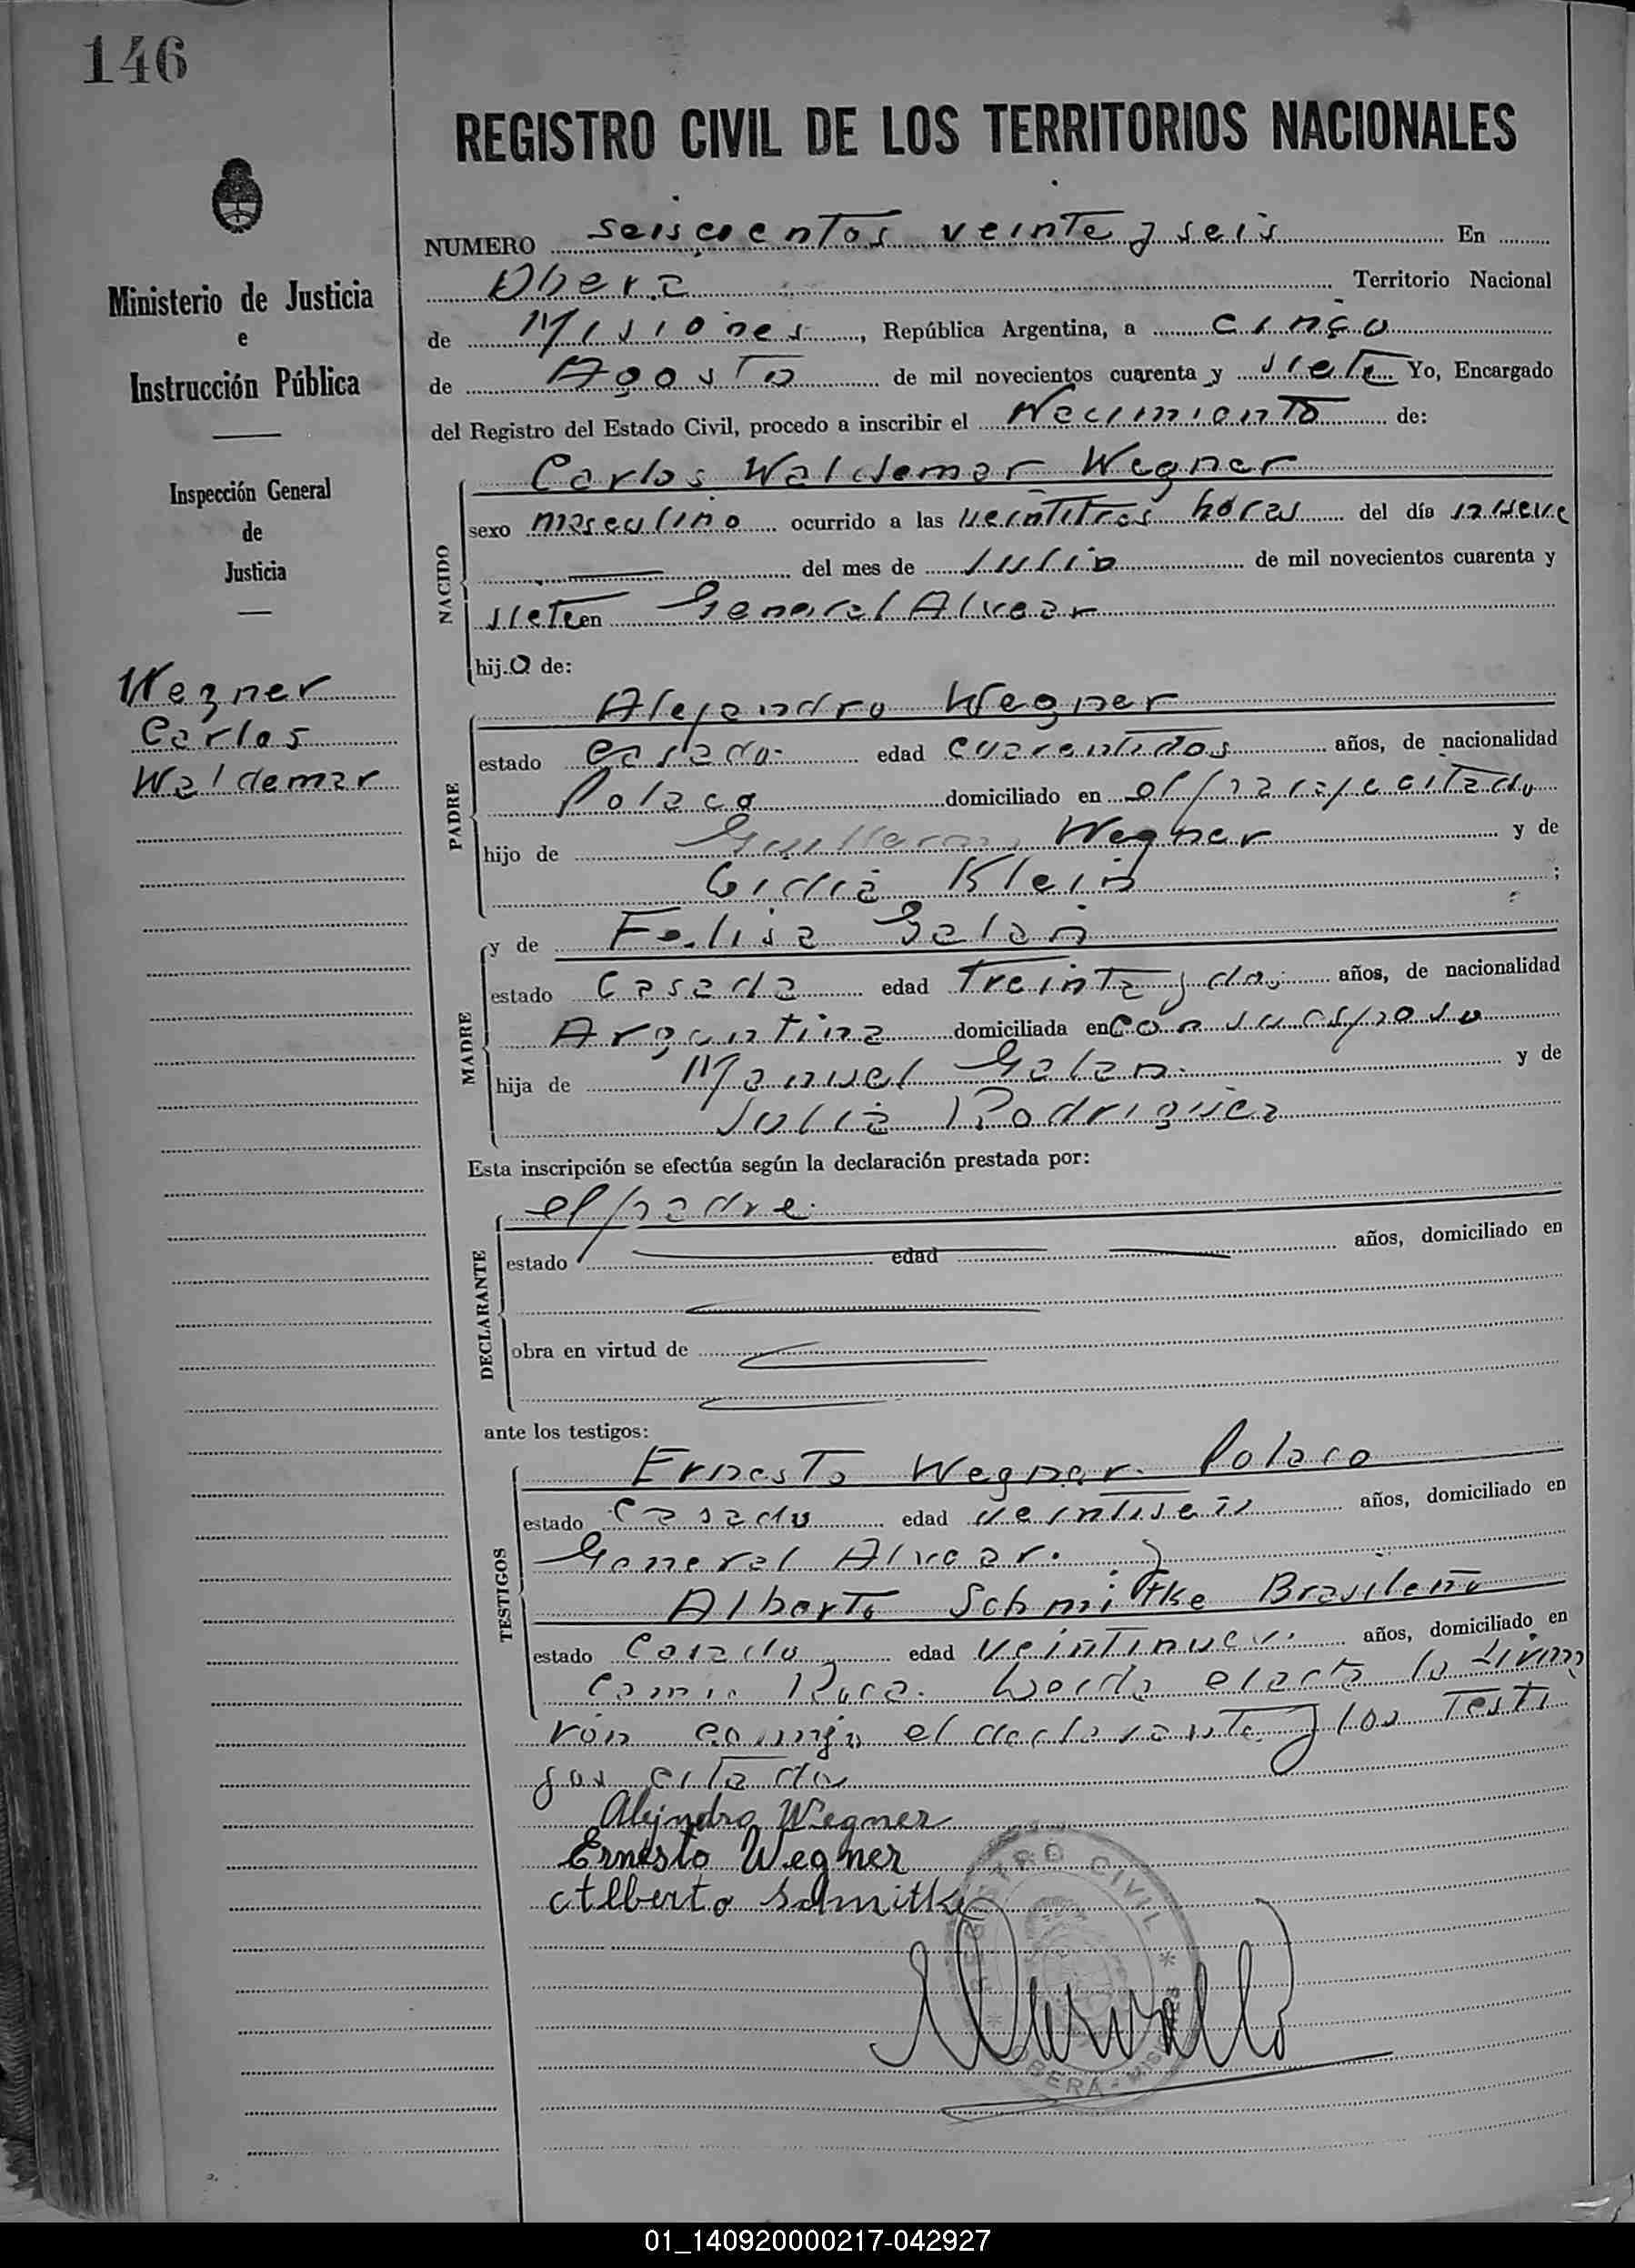 146
REGISTRO CIVIL DE LOS TERRITORIOS NACIONALES
Ministerio de Justicia
e
Instrucción Pública
Inspección General
de
Justicia
Wegner
Carlos
Waldemar
NUMERO seiscientos veinte y seis En
Obera Territorio Nacional
de Misiones, República Argentina, a cinco
de Agosto de mil novecientos cuarenta y siete Yo, Encargado
del Registro del Estado Civil, procedo a inscribir el Nacimiento de:
NACIDO
Carlos Waldemar Wegner
sexo masculino ocurrido a las veintitres horas del día nueve
del mes de Julio de mil novecientos cuarenta y
siete en General Alvear
hijo de:
PADRE
Alejandro Wegner
estado casado edad cuarentidos años, de nacionalidad
Polaco domiciliado en el paraje citado
hijo de Guillermo Wegner y de
Lidia Klein;
MADRE
y de Felisa Galan
estado casada edad Treinta y dos años, de nacionalidad
Argentina domiciliada en con su esposo
hija de Manuel Galan y de
Julia Rodriguez
Esta inscripción se efectúa según la declaración prestada por:
DECLARANTE
el padre
estado edad años, domiciliado en
obra en virtud de
ante los testigos:
TESTIGOS
Ernesto Wegner. Polaco
estado Casado edad veintiseis años, domiciliado en
General Alvear. y
Alberto Schmitke Brasileño
estado Casado edad veintinueve años, domiciliado en
Leida el acta la firma
ron conmigo el declarante y los Testi
gos citados
Alejndro Wegner
Ernesto Wegner
Alberto Schmitke
REGISTRO CIVIL
OBERA - MISIONES
01_140920000217-042927